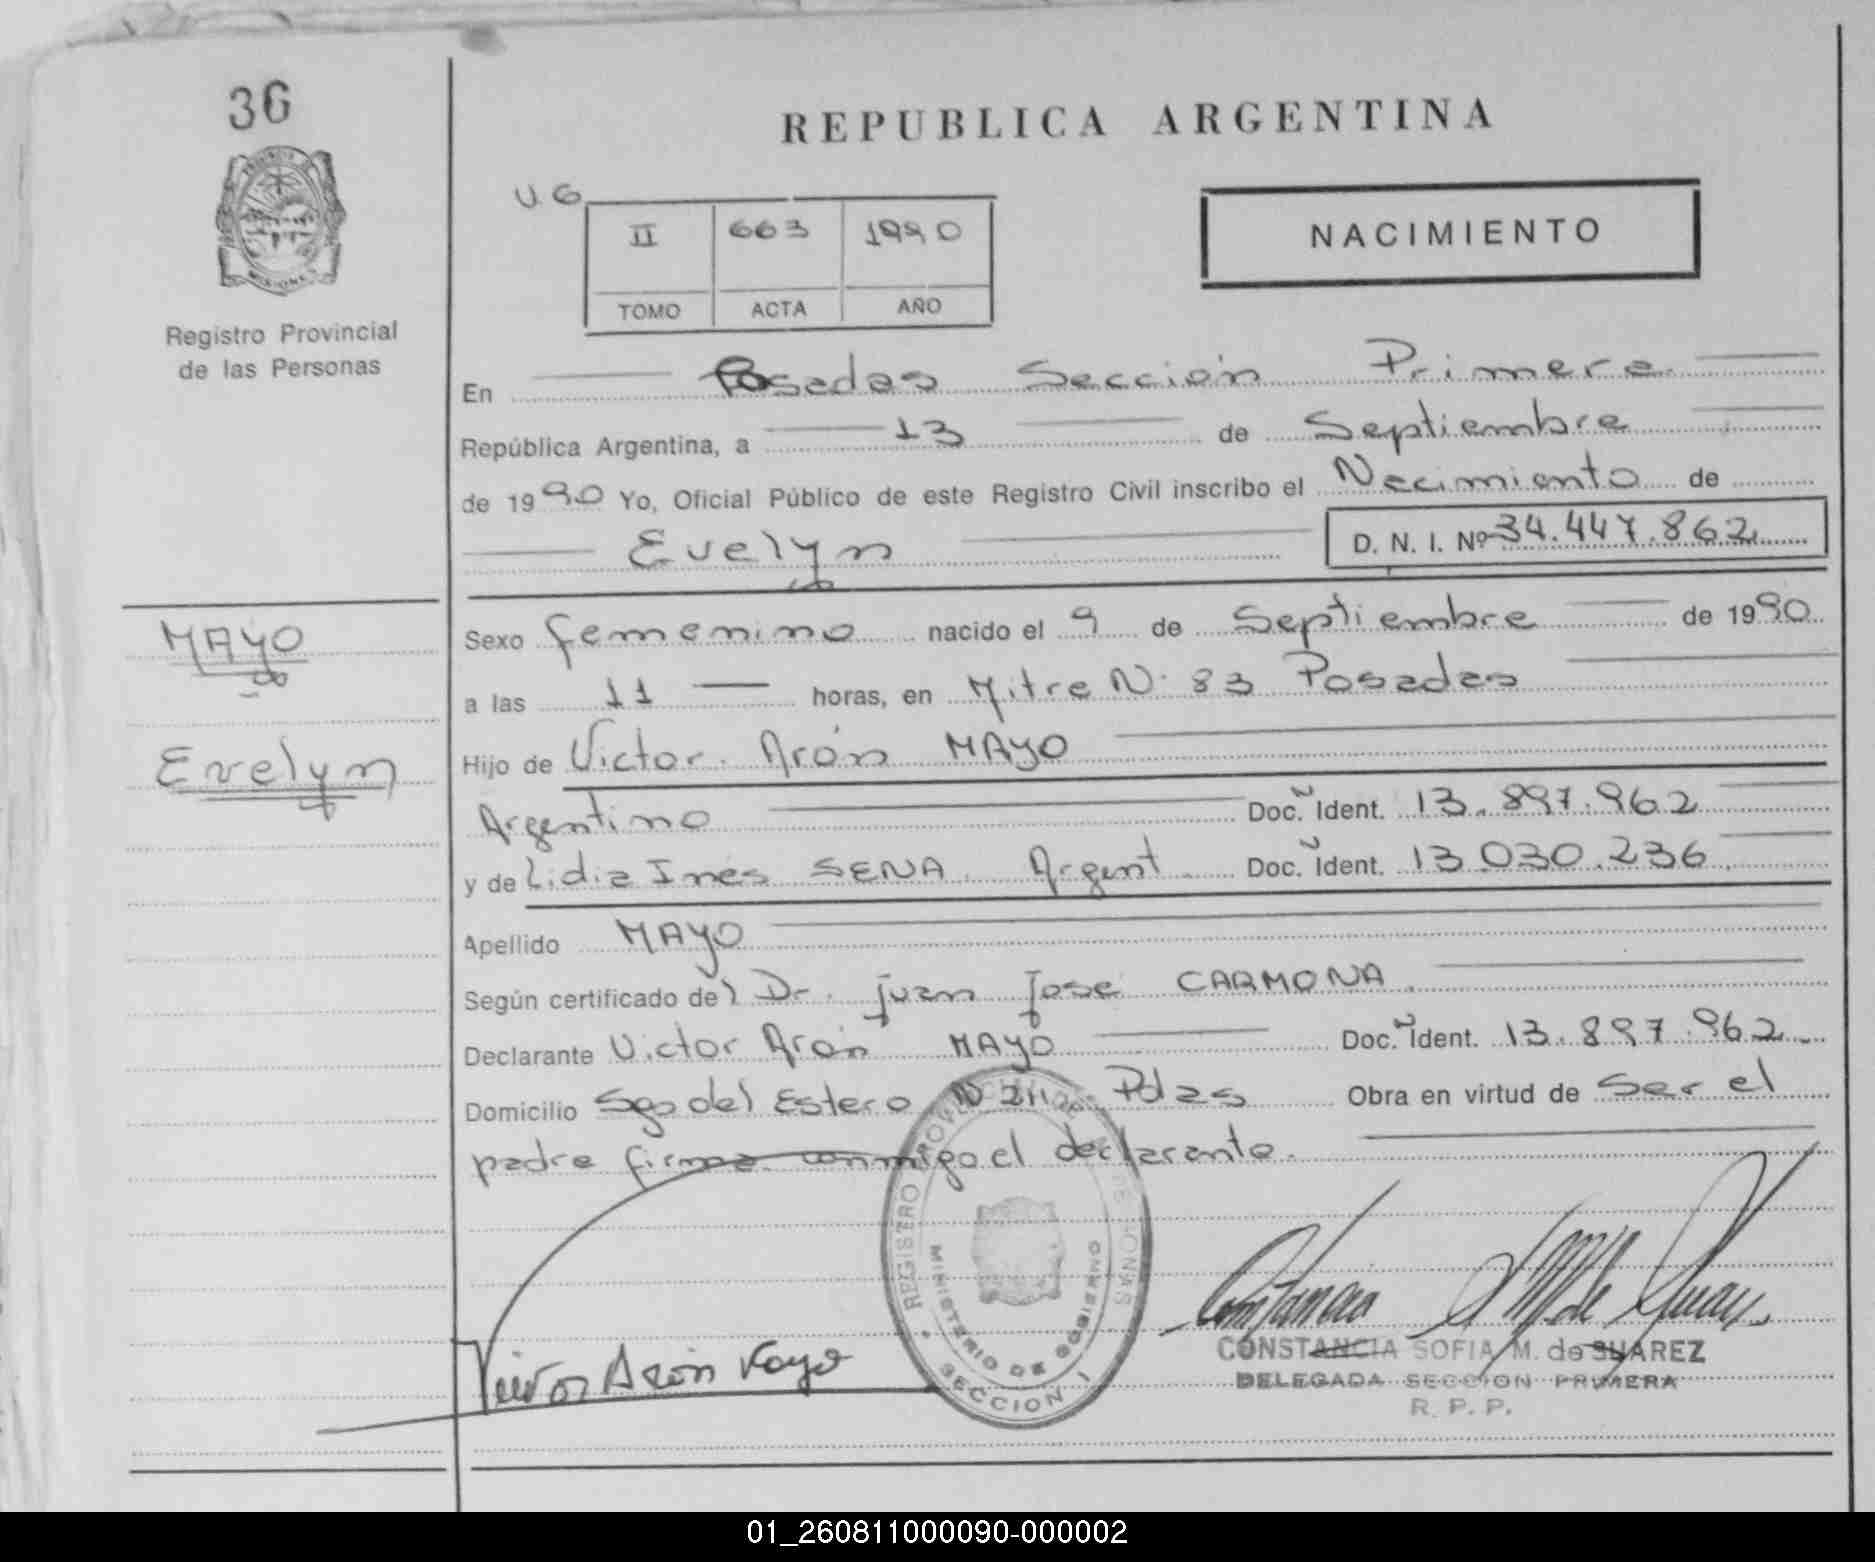 36
PROVINCIA DE
MISIONES
Registro Provincial
de las Personas
REPUBLICA ARGENTINA
U.6
II 663 1990
TOMO ACTA AÑO
NACIMIENTO
En Posadas Sección Primera
República Argentina, a 13 de Septiembre
de 1990 Yo, Oficial Público de este Registro Civil inscribo el Nacimiento de
Evelyn D. N. I. Nº 34.447.862
MAYO
Evelyn
Sexo femenino nacido el 9 de Septiembre de 1990
a las 11 horas, en Mitre N° 83 Posadas
Hijo de Victor Arón MAYO
Argentino Doc. Ident. 13.897.962
y de Lidia Inés SENA Argent. Doc. Ident. 13.030.236
Apellido MAYO
Según certificado del Dr. Juan José CARMONA
Declarante Victor Arón MAYO Doc. Ident. 13.897.962
Domicilio Sgo del Estero N° Pdas Obra en virtud de Ser el
padre firma conmigo el declarante.
REGISTRO PROVINCIAL DE LAS PERSONAS
MINISTERIO DE GOBIERNO
SECCION I
Victor Arón Mayo
Constancia S M de Suarez
CONSTANCIA SOFIA M. de SUAREZ
DELEGADA SECCION PRIMERA
R. P. P.
01_260811000090-000002